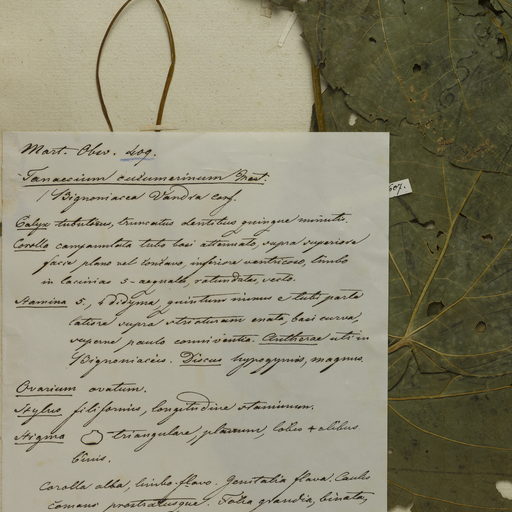 Mart. Obs. 409.
Tanaesium cucumerinum Mart.
/ Bignoniacea Vandra conf.
Calyx tubulosus, truncatus dentibus quinque minutis.
Corolla campanulata tubo basi attenuato, supra superiore
facie plano vel concavo, inferiore ventricoso, limbo
in lacinias 5-aequales, rotundatas, secto.
Stamina 5, didyma, quintum minus e tubi parte
latiore supra stricturam enata, basi curva,
superne paulo conniventia. Antherae uti in
Bignoniaceis. Discus hypogynus, magnus.
Ovarium ovatum.
Stylus filiformis, longitudine staminum.
Stigma triangulare, planum, lobis
binis.
Corolla alba, limbo flavo. Genitalia flava. Caulis
prostratusque. Folia grandia, binata,
607.